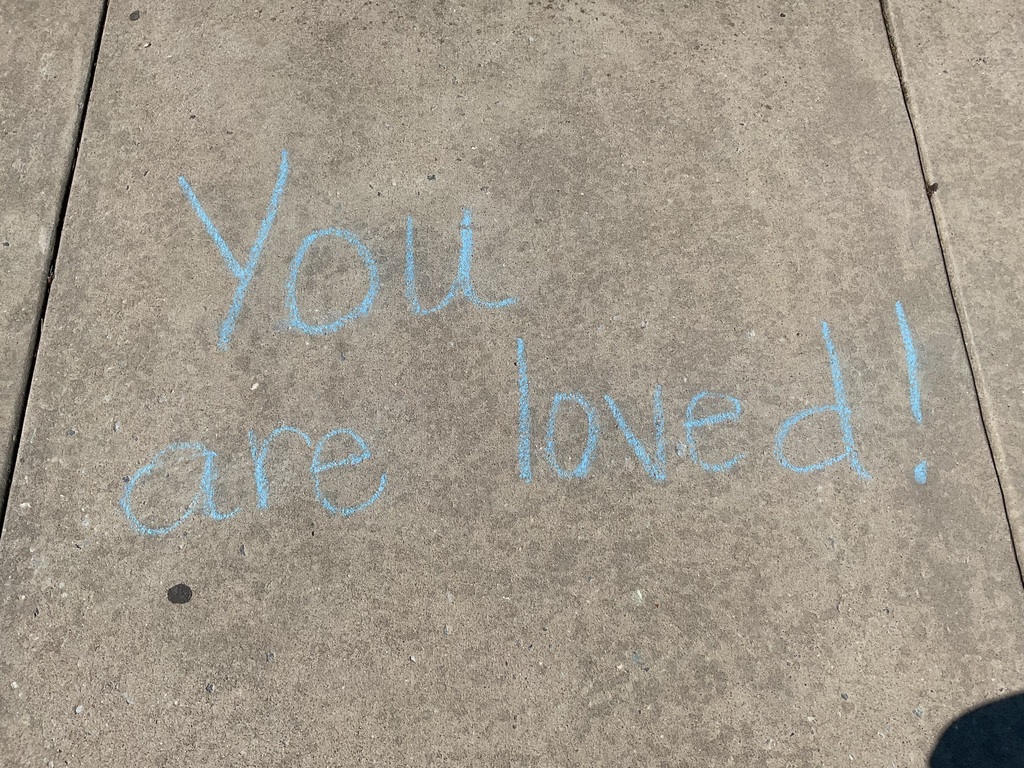 You
are loved!